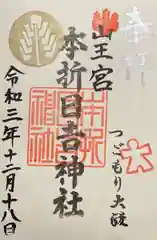 奉拝
山王宮
本折日吉神社
つごもり大祓
令和三年十二月十八日